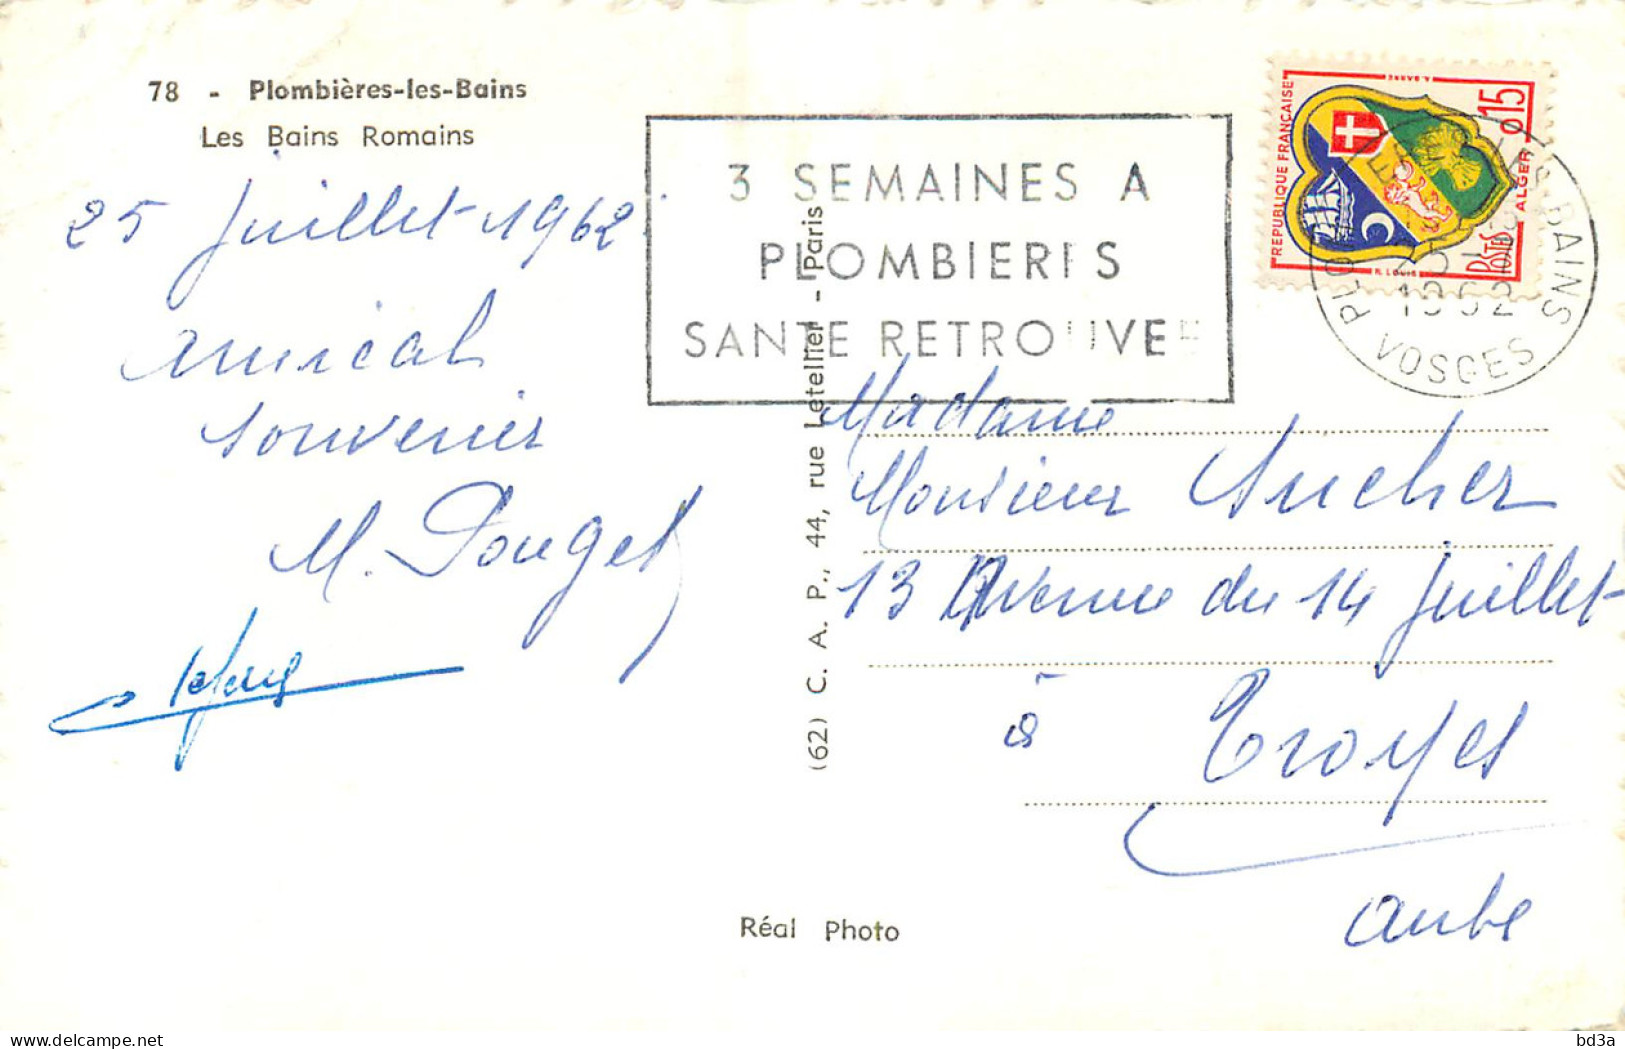 78 - Plombières-les-Bains
Les Bains Romains
25 Juillet 1962
Amical
Souvenir
M. Pouget
3 SEMAINES A
PLOMBIERES
SANTE RETROUVEE
REPUBLIQUE FRANÇAISE
0,15
ALGER
POSTES
R. LOUIS
PLOMBIERES-LES-BAINS
1962
VOSGES
(62) C. A. P., 44, rue Letellier - Paris
Madame
Monsieur Sucher
13 Avenue du 14 Juillet
à Troyes
Aube
Réal Photo
delcampe.net
bd3a